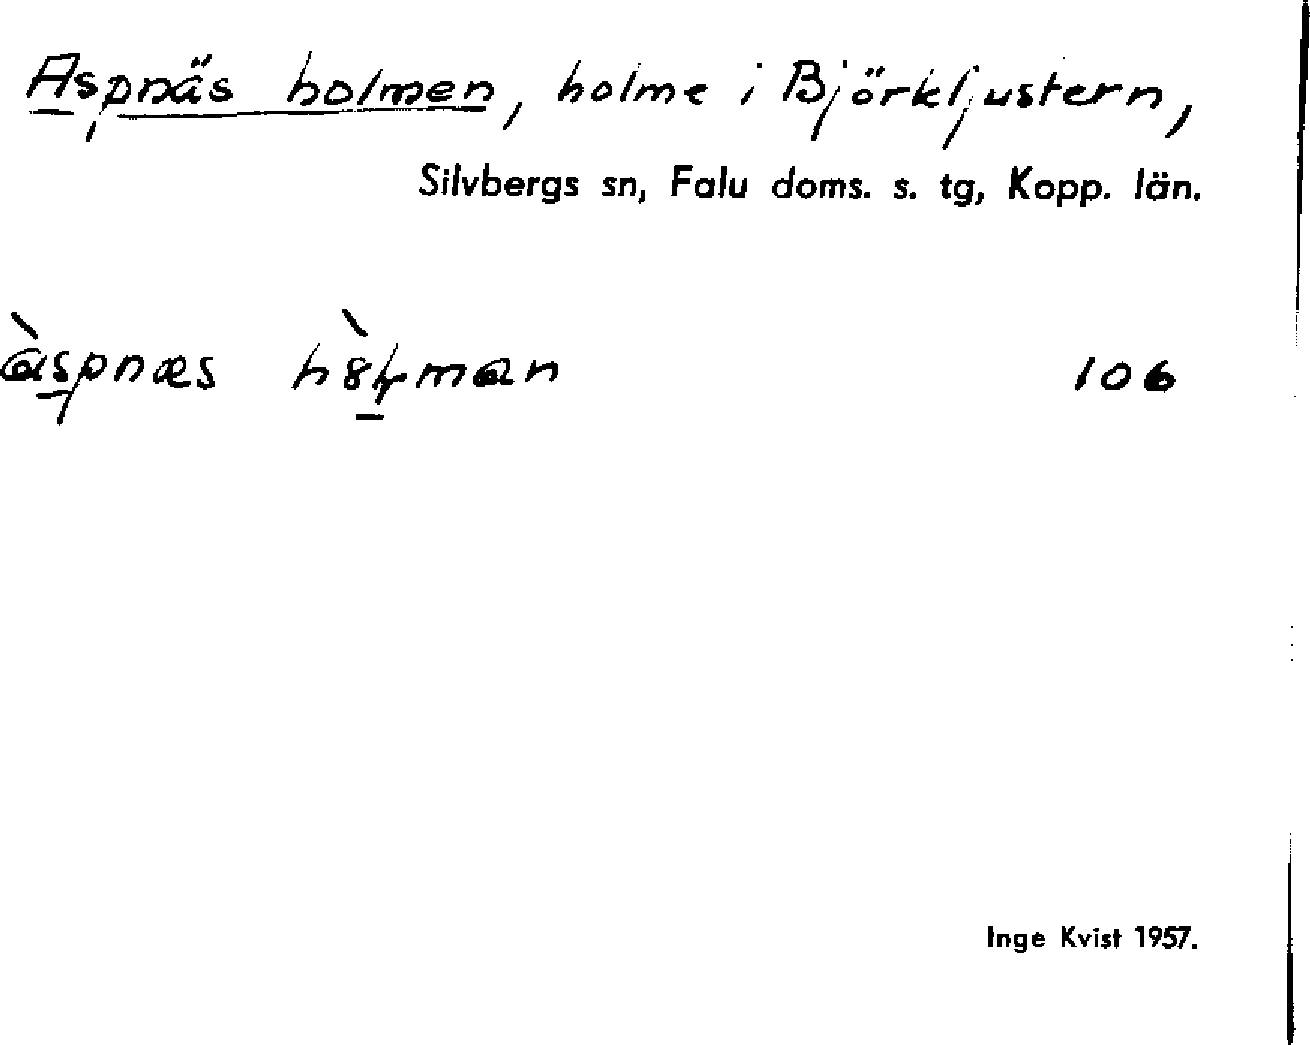 Aspnäs holmen, holme i Björkljustern,
Silvbergs sn, Falu doms. s. tg, Kopp. län.
106
Inge Kvist 1957.